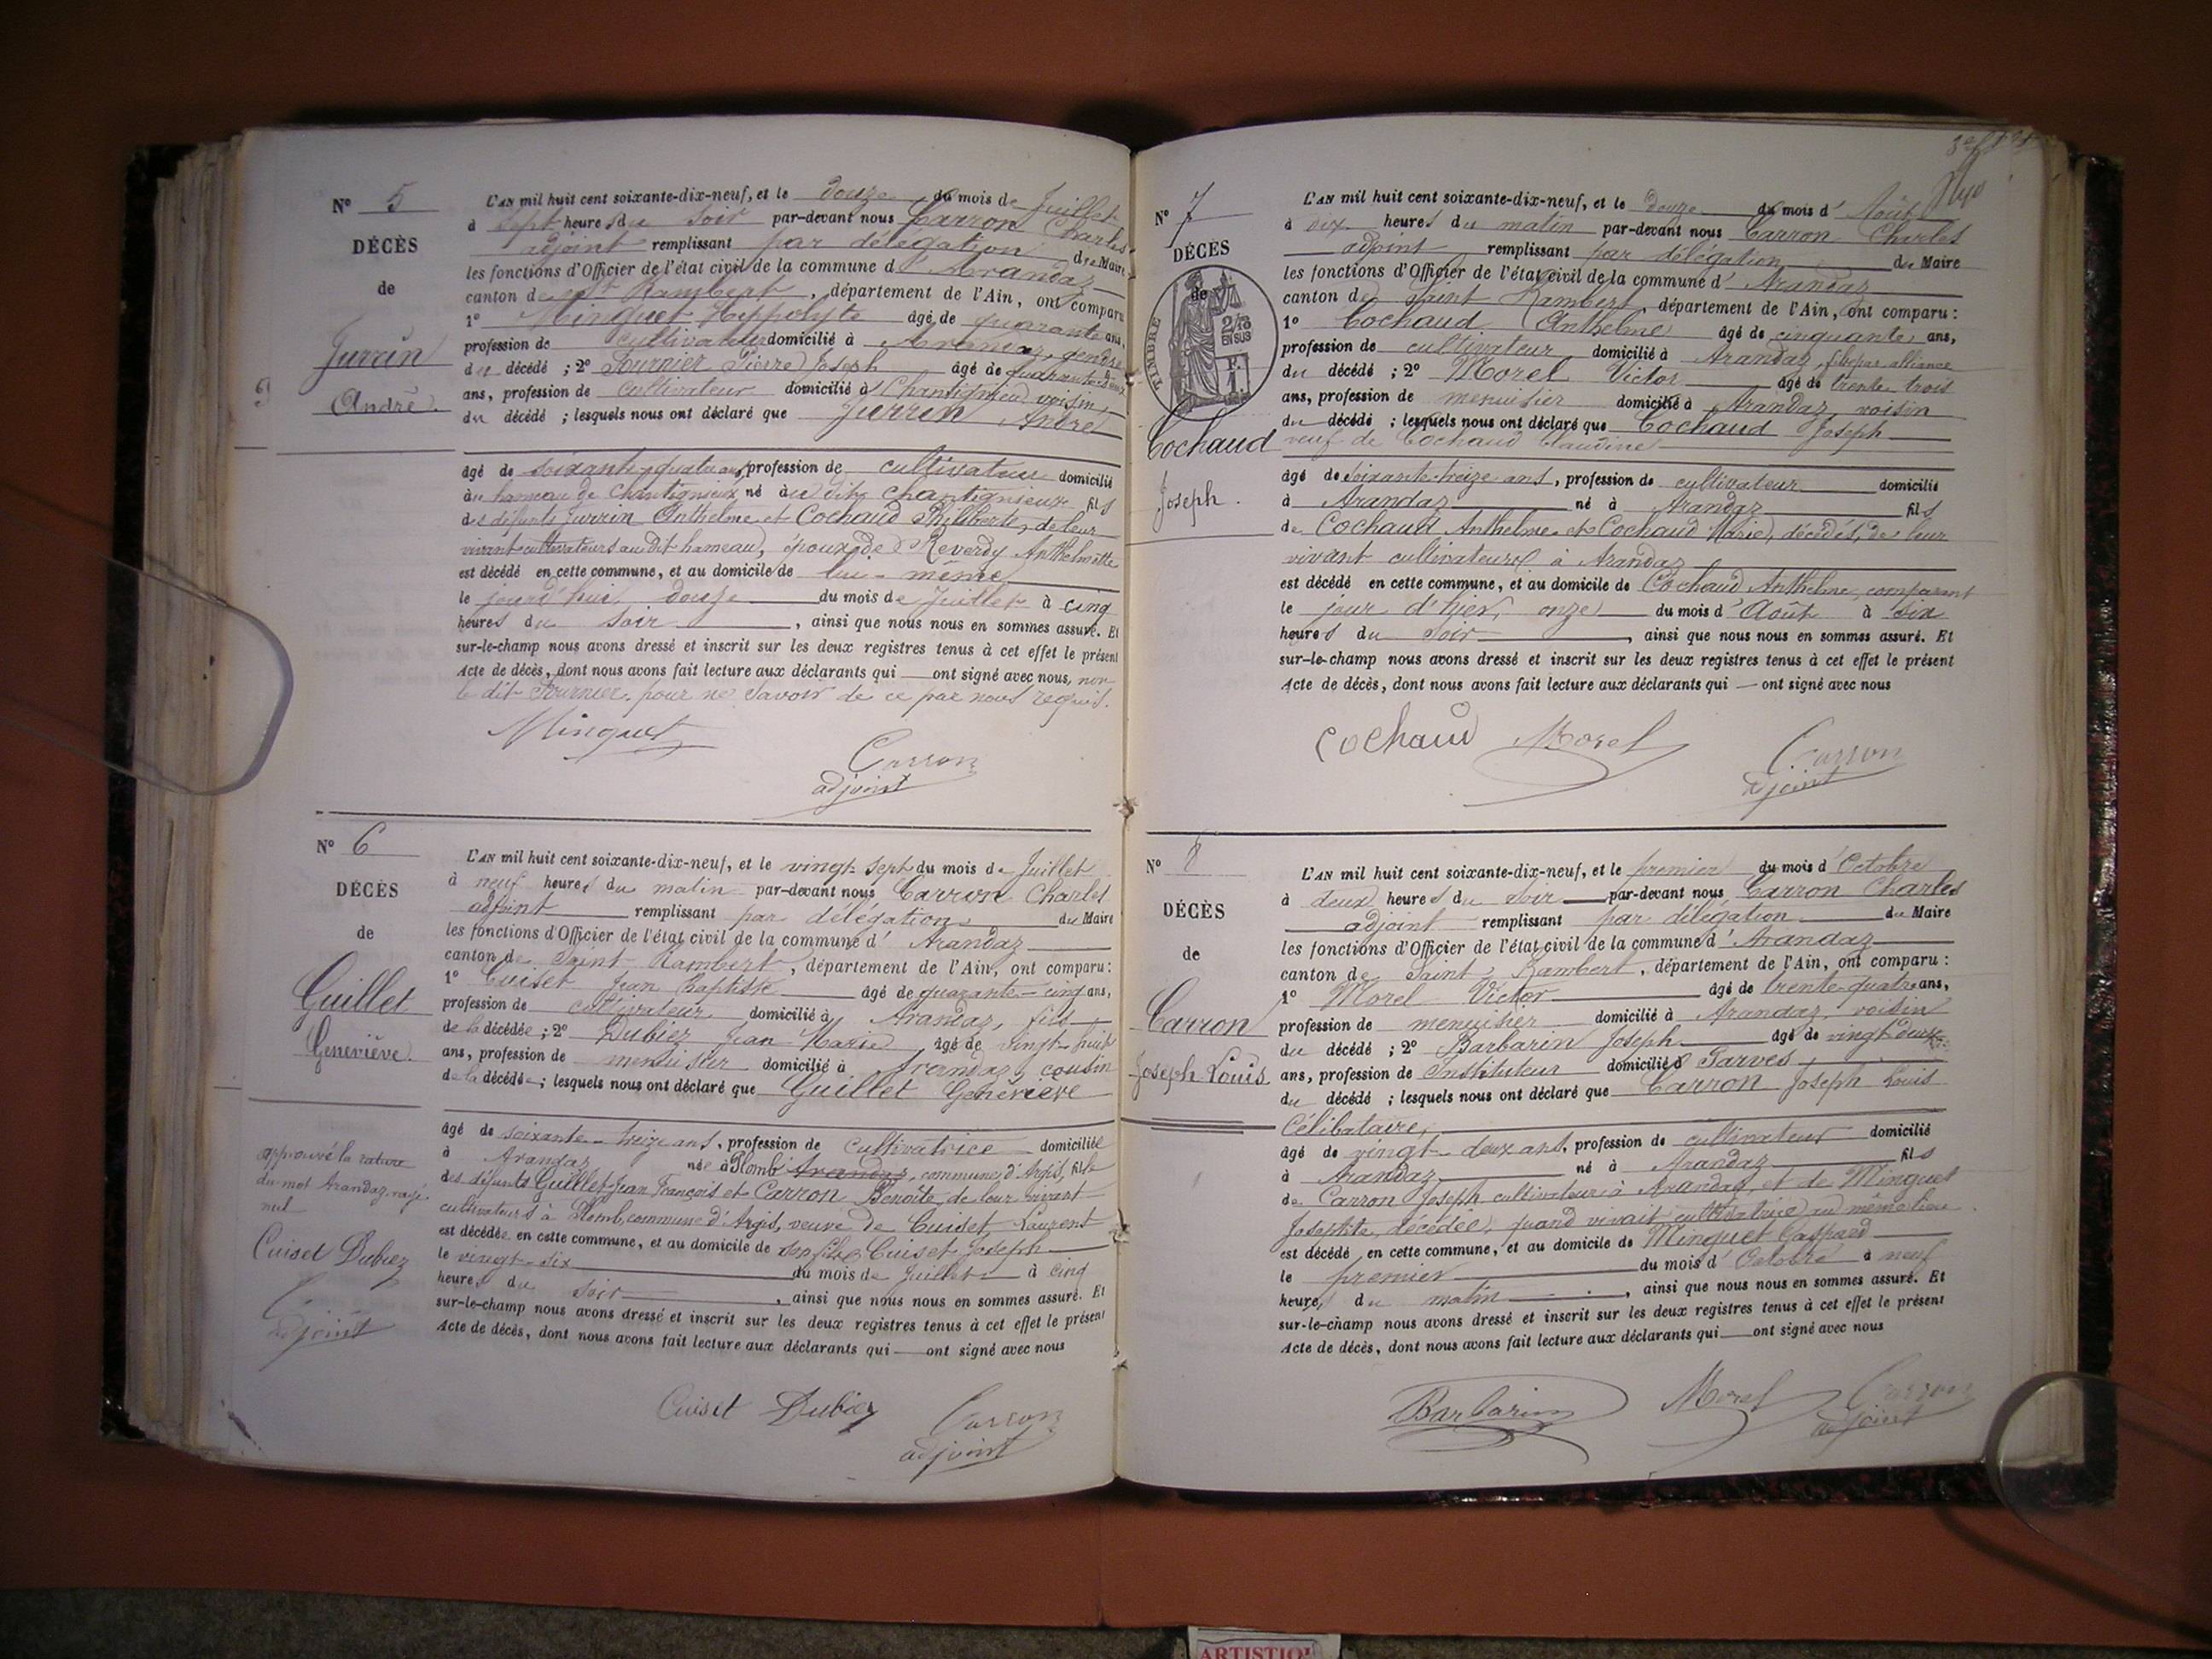 N° 5
DÉCÈS
de
Jurrin
André.
L'AN mil huit cent soixante-dix-neuf, et le douze du mois de Juillet
à sept heures du soir par-devant nous Carron Charles
adjoint remplissant par délégation du Maire
les fonctions d'Officier de l'état civil de la commune d'Arandaz
canton de St Rambert, département de l'Ain, ont comparu
1° Minguet Hippolyte âgé de quarante ans,
profession de cultivateur domicilié à Arandaz, gendre
du décédé ; 2° Fournier Pierre Joseph âgé de quarante-deux
ans, profession de cultivateur domicilié à Chantignieu voisin,
du décédé ; lesquels nous ont déclaré que Jurrin André
âgé de soixante-quatre ans, profession de cultivateur domicilié
au hameau de Chantignieux né au dit Chantignieux fils
des défunts Jurrin Anthelme et Cochaud Philiberte, de leur
vivant cultivateurs au dit hameau, époux de Reverdy Anthelmette
est décédé en cette commune, et au domicile de lui-même
le jourd'hui douze du mois de Juillet à cinq
heures du soir, ainsi que nous nous en sommes assuré. Et
sur-le-champ nous avons dressé et inscrit sur les deux registres tenus à cet effet le présent
Acte de décès, dont nous avons fait lecture aux déclarants qui ont signé avec nous, non
le dit Fournier pour ne savoir de ce par nous requis.
Minguet
Carron
adjoint
N° 6
DÉCÈS
de
Guillet
Geneviève.
L'AN mil huit cent soixante-dix-neuf, et le vingt-sept du mois de Juillet
à neuf heures du matin par-devant nous Carron Charles
adjoint remplissant par délégation du Maire
les fonctions d'Officier de l'état civil de la commune d'Arandaz
canton de Saint Rambert, département de l'Ain, ont comparu :
1° Cuiset Jean Baptiste âgé de quarante-cinq ans,
profession de cultivateur domicilié à Arandaz, fils
de la décédée ; 2° Dubiez Jean Marie âgé de vingt-huit
ans, profession de menuisier domicilié à Arandaz cousin
de la décédée ; lesquels nous ont déclaré que Guillet Geneviève
âgé de soixante-treize ans, profession de cultivatrice domiciliée
à Arandaz née à Plomb Arandaz, commune d'Argis, fille
des défunts Guillet Jean François et Carron Benoîte, de leur vivant
cultivateurs à Plomb, commune d'Argis, veuve de Cuiset Laurent
est décédée en cette commune, et au domicile de son fils Cuiset Joseph
le vingt-six du mois de Juillet à cinq
heures du soir, ainsi que nous nous en sommes assuré. Et
sur-le-champ nous avons dressé et inscrit sur les deux registres tenus à cet effet le présent
Acte de décès, dont nous avons fait lecture aux déclarants qui ont signé avec nous
approuvé la rature
du mot Arandaz rayé
nul
Cuiset Dubiez
adjoint
Cuiset Dubiez Carron
adjoint
N° 7
DÉCÈS
de
TIMBRE
2/10
EN SUS
Cochaud
Joseph.
L'AN mil huit cent soixante-dix-neuf, et le douze du mois d'Août
à dix heures du matin par-devant nous Carron Charles
adjoint remplissant par délégation du Maire
les fonctions d'Officier de l'état civil de la commune d'Arandaz
canton de Saint Rambert, département de l'Ain, ont comparu :
1° Cochaud Anthelme âgé de cinquante ans,
profession de cultivateur domicilié à Arandaz, fils par alliance
du décédé ; 2° Morel Victor âgé de trente-trois
ans, profession de menuisier domicilié à Arandaz, voisin
du décédé ; lesquels nous ont déclaré que Cochaud Joseph
veuf de Cochaud Claudine
âgé de soixante-treize ans, profession de cultivateur domicilié
à Arandaz né à Arandaz fils
de Cochaud Anthelme et Cochaud Marie, décédés, de leur
vivant cultivateurs à Arandaz
est décédé en cette commune, et au domicile de Cochaud Anthelme, comparant
le jour d'hier, onze du mois d'Août à six
heures du soir, ainsi que nous nous en sommes assuré. Et
sur-le-champ nous avons dressé et inscrit sur les deux registres tenus à cet effet le présent
Acte de décès, dont nous avons fait lecture aux déclarants qui — ont signé avec nous
Cochaud Morel Carron
adjoint
N° 8
DÉCÈS
de
Carron
Joseph Louis
L'AN mil huit cent soixante-dix-neuf, et le premier du mois d'Octobre
à deux heures du soir par-devant nous Carron Charles
adjoint remplissant par délégation du Maire
les fonctions d'Officier de l'état civil de la commune d'Arandaz
canton de Saint Rambert, département de l'Ain, ont comparu :
1° Morel Victor âgé de trente-quatre ans,
profession de menuisier domicilié à Arandaz, voisin
du décédé ; 2° Barbarin Joseph âgé de vingt-deux
ans, profession de Instituteur domicilié à Parves,
du décédé ; lesquels nous ont déclaré que Carron Joseph Louis
Célibataire,
âgé de vingt-deux ans, profession de cultivateur domicilié
à Arandaz né à Arandaz fils
de Carron Joseph cultivateur à Arandaz, et de Minguet
Josephte, décédée, quand vivait cultivatrice au même lieu
est décédé en cette commune, et au domicile de Minguet Gaspard
le premier du mois d'Octobre à neuf
heures du matin, ainsi que nous nous en sommes assuré. Et
sur-le-champ nous avons dressé et inscrit sur les deux registres tenus à cet effet le présent
Acte de décès, dont nous avons fait lecture aux déclarants qui — ont signé avec nous
Barbarin Morel Carron
adjoint